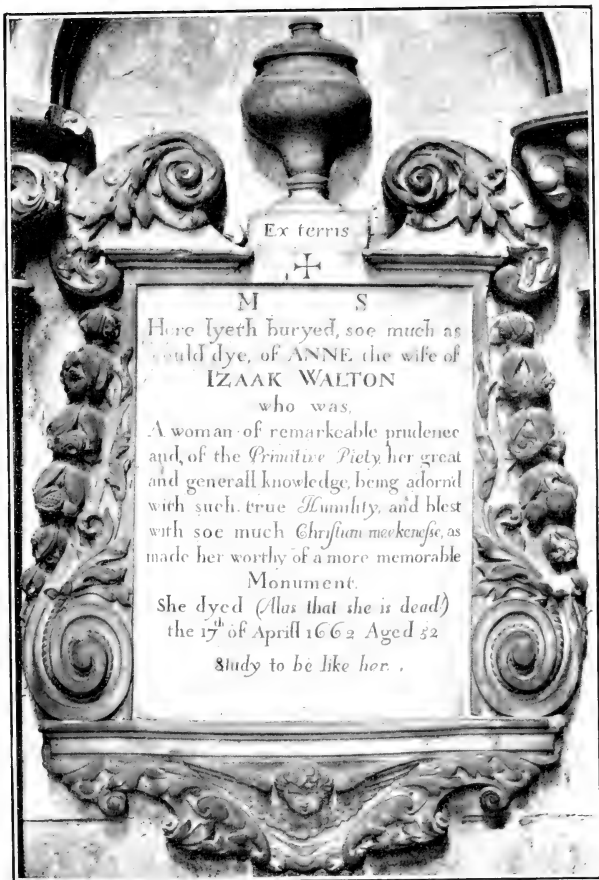 Ex terris
M S
Here lyeth buryed, soe much as
could dye, of ANNE the wife of
IZAAK WALTON
who was,
A woman of remarkeable prudence
and, of the Primitive Piety, her great
and generall knowledge, being adorn'd
with such true Humility, and blest
with soe much Christian meekenesse, as
made her worthy of a more memorable
Monument.
She dyed (Alas that she is dead!)
the 17th of Aprill 1662 Aged 52
Study to be like her.